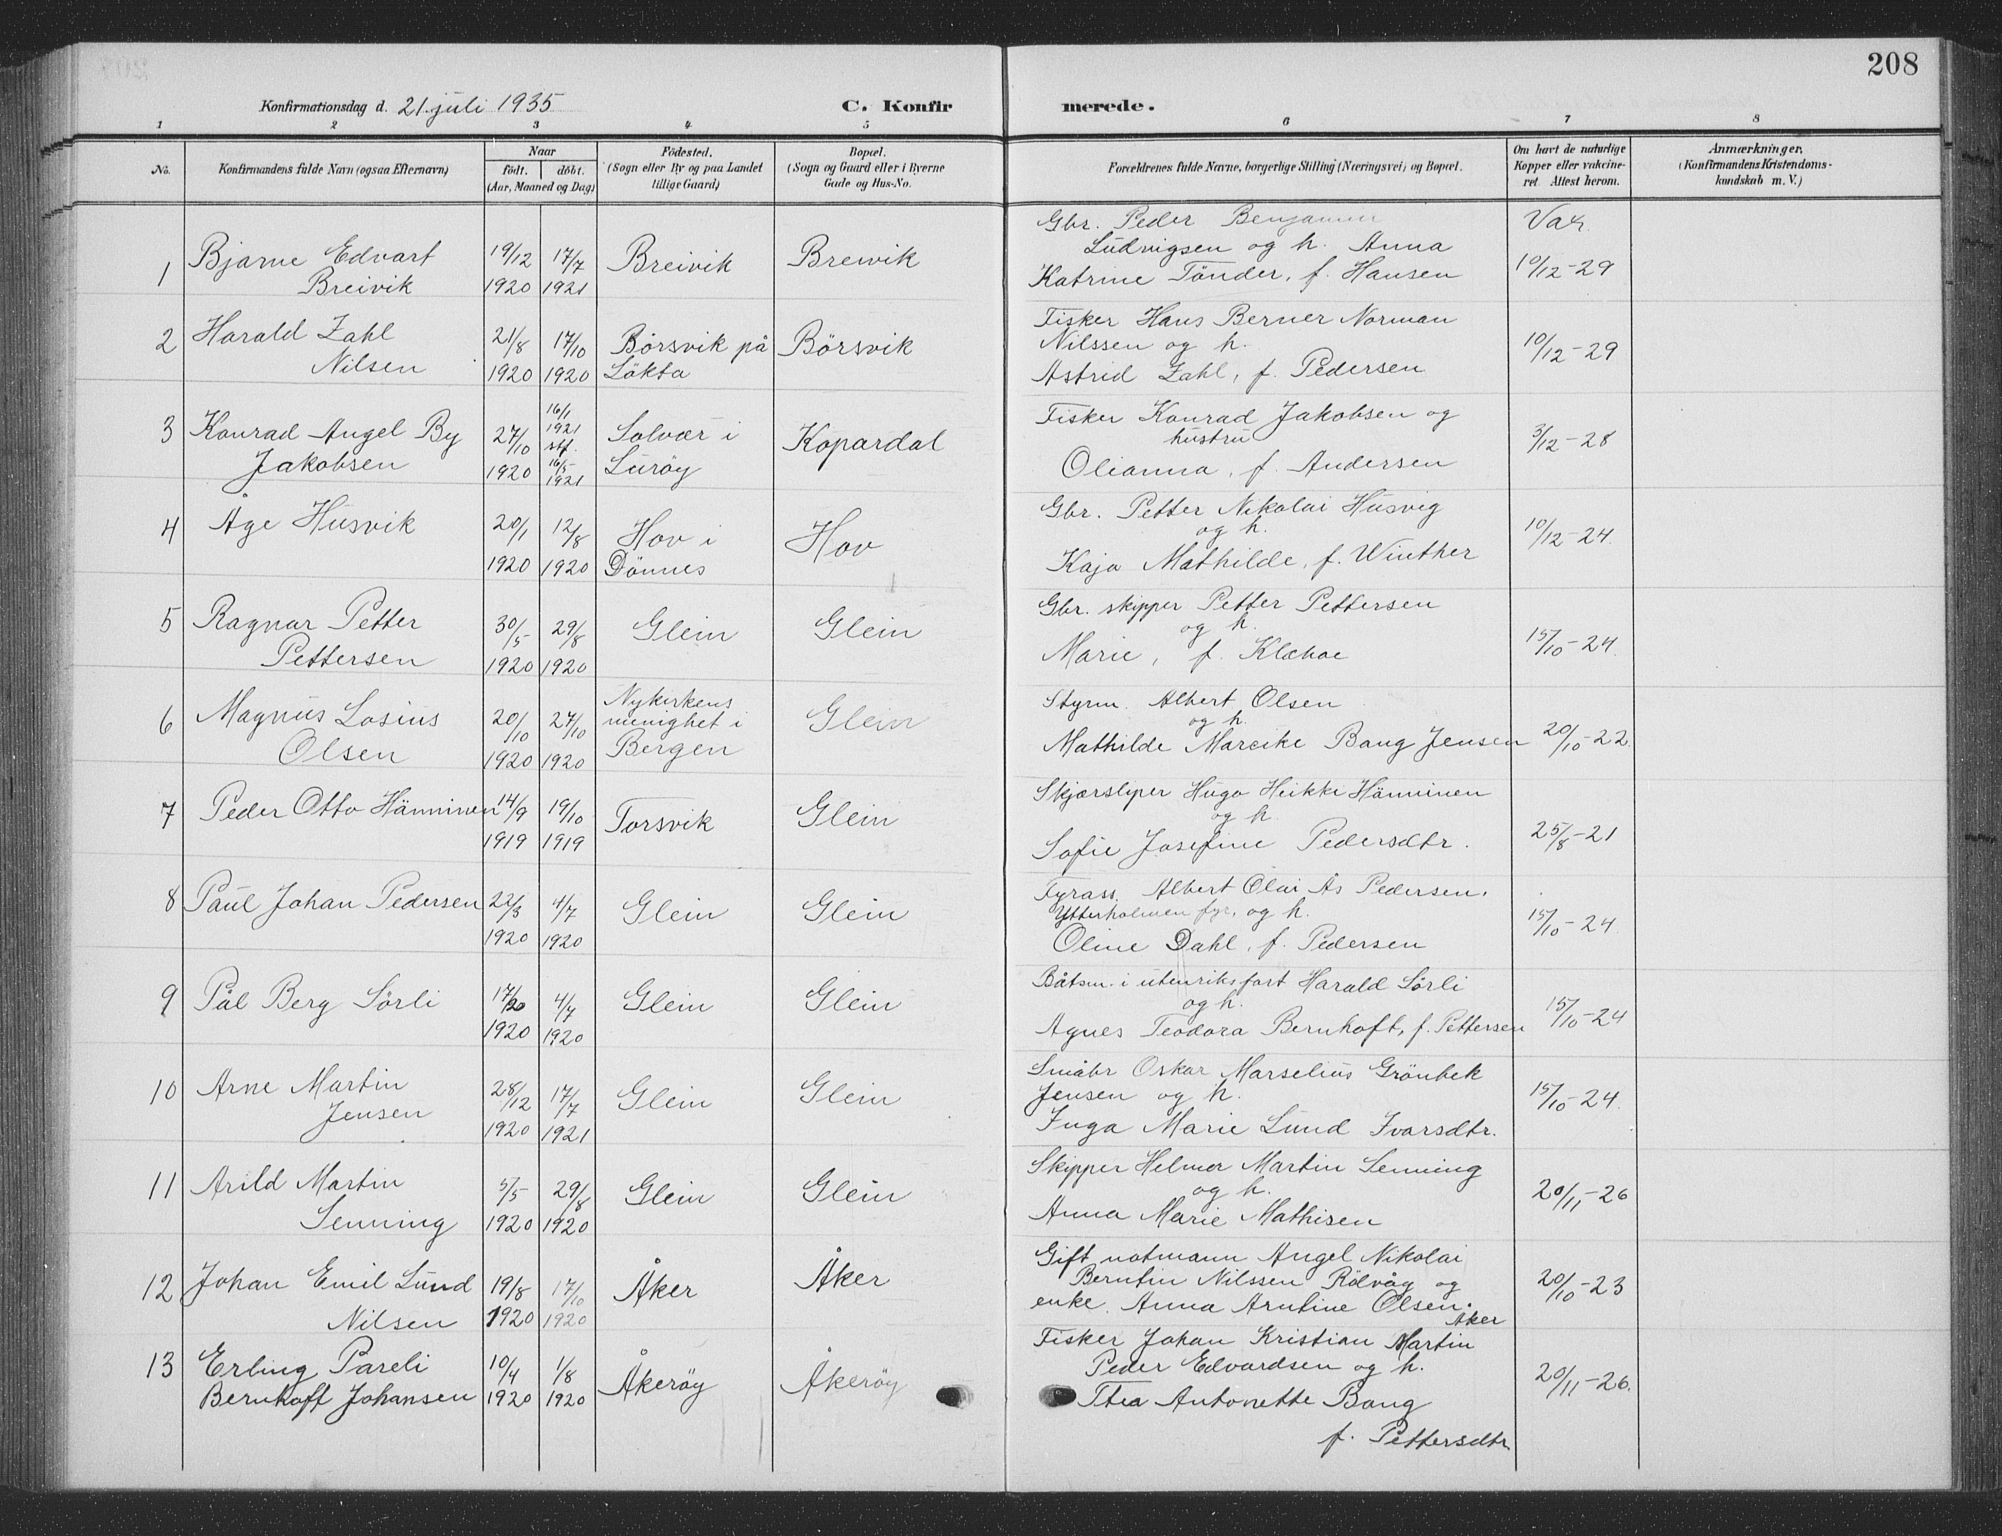 208
Konfirmationsdag d. 21. juli 1935 C. Konfirmerede.
1 2 3 4 5 6 7 8
No. Konfirmandens fulde Navn (ogsaa Efternavn) Naar født. døbt. (Aar, Maaned og Dag) Fødested. (Sogn eller By og paa Landet tillige Gaard) Bopæl. (Sogn og Gaard eller i Byerne Gade og Hus-No. Forældrenes fulde Navne, borgerlige Stilling (Næringsvei) og Bopæl. Om havt de naturlige Kopper eller vakcineret. Attest herom. Anmærkninger. (Konfirmandens Kristendomskundskab m. V.)
Gbr. Peder Benjamin Vax.
1 Bjarne Edvart 19/12 17/7 Breivik Breivik Ludvigsen og h. Anna
Breivik 1920 1921 Katrine Tönder, f. Hansen 10/12-29
2 Harald Zahl 21/8 17/10 Börsvik på Börsvik Fisker Hans Berner Norman
Nilsen 1920 1920 Lökta Nilssen og h. 10/12-29
Astrid Zahl, f. Pedersen
3 Konrad Angel By 27/10 16/1 1921 stf. Solvær i Kopardal Fisker Konrad Jakobsen og
Jakobsen 1920 16/5 1921 Luröy hustru 3/12-28
Olianna, f. Andersen
4 Åge Husvik 20/1 12/8 Hov i Hov Gbr. Petter Nikolai Husvig
1920 1920 Dönnes og h. 10/12-24.
Kaja Mathilde, f. Winther
5 Ragnar Petter 30/5 29/8 Glein Glein Gbr. skipper Petter Pettersen
Pettersen 1920 1920 og h. 15/10-24.
Marie, f. Klæboe
6 Magnus Losius 20/10 27/10 Nykirkens Glein Styrm. Albert Olsen
Olsen 1920 1920 menighet i og h.
Bergen Mathilde Mareike Bang Jensen 20/10-22.
7 Peder Otto Hänninen 14/9 19/10 Torsvik Glein Skjærsliper Hugo Heikki Hänninen
1919 1919 og h. 25/8-21
Sofie Josefine Pedersdtr.
8 Paul Johan Pedersen 22/3 4/7 Glein Glein Fyrass. Albert Olai As Pedersen.
1920 1920 Ytterholmen fyr, og h. 15/10-24.
Oline Dahl, f. Pedersen
9 Pål Berg Sörli 17/20 4/7 Glein Glein Båtsm. i utenriksfart Harald Sörli
1920 1920 og h. 15/10-24
Agnes Teodora Bernhoft, f. Pettersen
10 Arne Martin 28/12 17/7 Glein Glein Småbr Oskar Marselius Grönbek
Jensen 1920 1921 Jensen og h. 15/10-24.
Inga Marie Lund Ivarsdtr.
11 Arild Martin 5/5 29/8 Glein Glein Skipper Helmer Martin Senning
Senning 1920 1920 og h. 20/11-26
Anna Marie Mathisen
12 Johan Emil Lund 19/8 17/10 Åker Åker Gift notmann Angel Nikolai
Nilsen 1920 1920 Berntin Nilssen Rölvåg og 20/10-23
enke. Anna Arntine Olsen.
Aker
13 Erling Pareli 10/4 1/8 Åkeröy Åkeröy Fisker Johan Kristian Martin
Bernhoff Johansen 1920 1920 Peder Edvardsen og h. 20/11-26.
Thea Antonette Bang
f. Pettersdtr